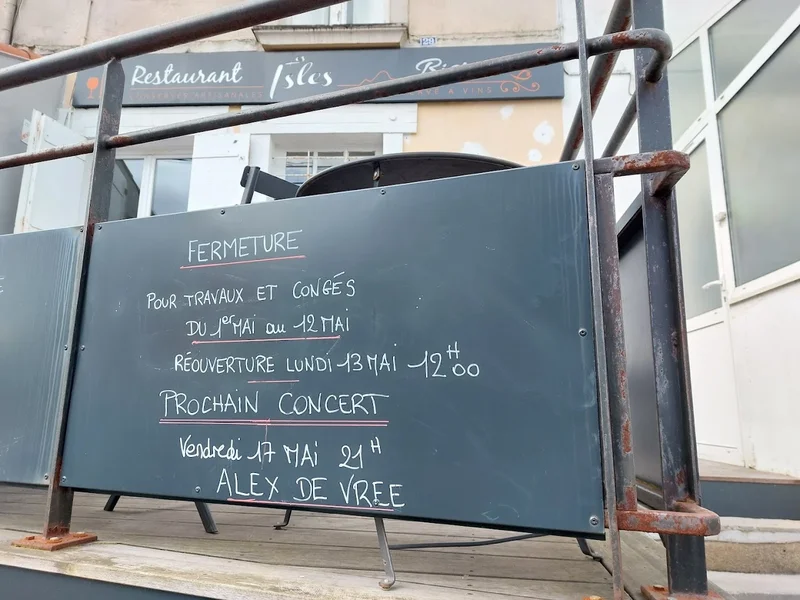 128
Restaurant Isles
FERMETURE
POUR TRAVAUX ET CONGÉS
DU 1er MAI au 12 MAI
RÉOUVERTURE LUNDI 13 MAI 12H00
PROCHAIN CONCERT
Vendredi 17 MAI 21H
ALEX DE VREE